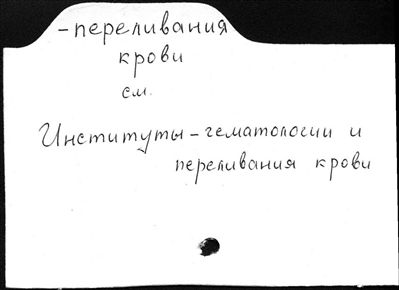 -переливания
крови
см.
Институты-гематологии и
переливания крови